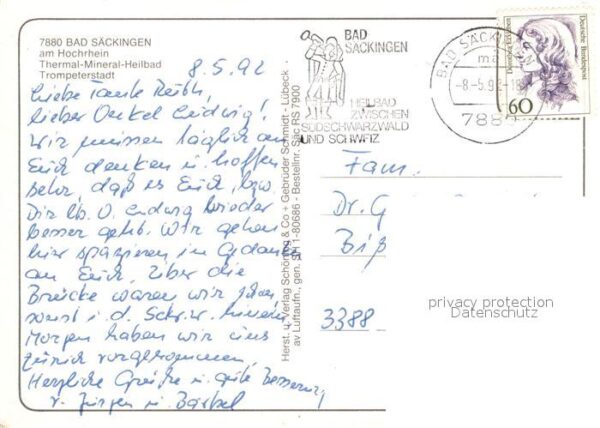 7880 BAD SÄCKINGEN
am Hochrhein
Thermal-Mineral-Heilbad
Trompeterstadt
8.5.92
Liebe Tante Ruth,
lieber Onkel Ludwig!
Wir müssen täglich an
Euch denken u. hoffen
sehr, daß es Euch, bzw.
Dir lb. O. Ludwig wieder
besser geht. Wir gehen
hier spazieren in Gedanken
an Euch. Über die
Brücke waren wir schon
sonst i. d. Schweiz
Morgen haben wir uns
Zürich vorgenommen.
Herzliche Grüße u. gute Besserung
v. Jürgen u. Bärbel
Herst. u. Verlag Schöning & Co + Gebrüder Schmidt - Lübeck -
av Luftaufn., gen. SH 1-80686 - Bestellnr. Säc RS 7900
BAD
SÄCKINGEN
HEILBAD
ZWISCHEN
SÜDSCHWARZWALD
UND SCHWEIZ
BAD SÄCKIN
ma
-8.-5.92-18
788
Deutsche Bundespost
60
Fam.
Dr. G
Biß
3388
privacy protection
Datenschutz